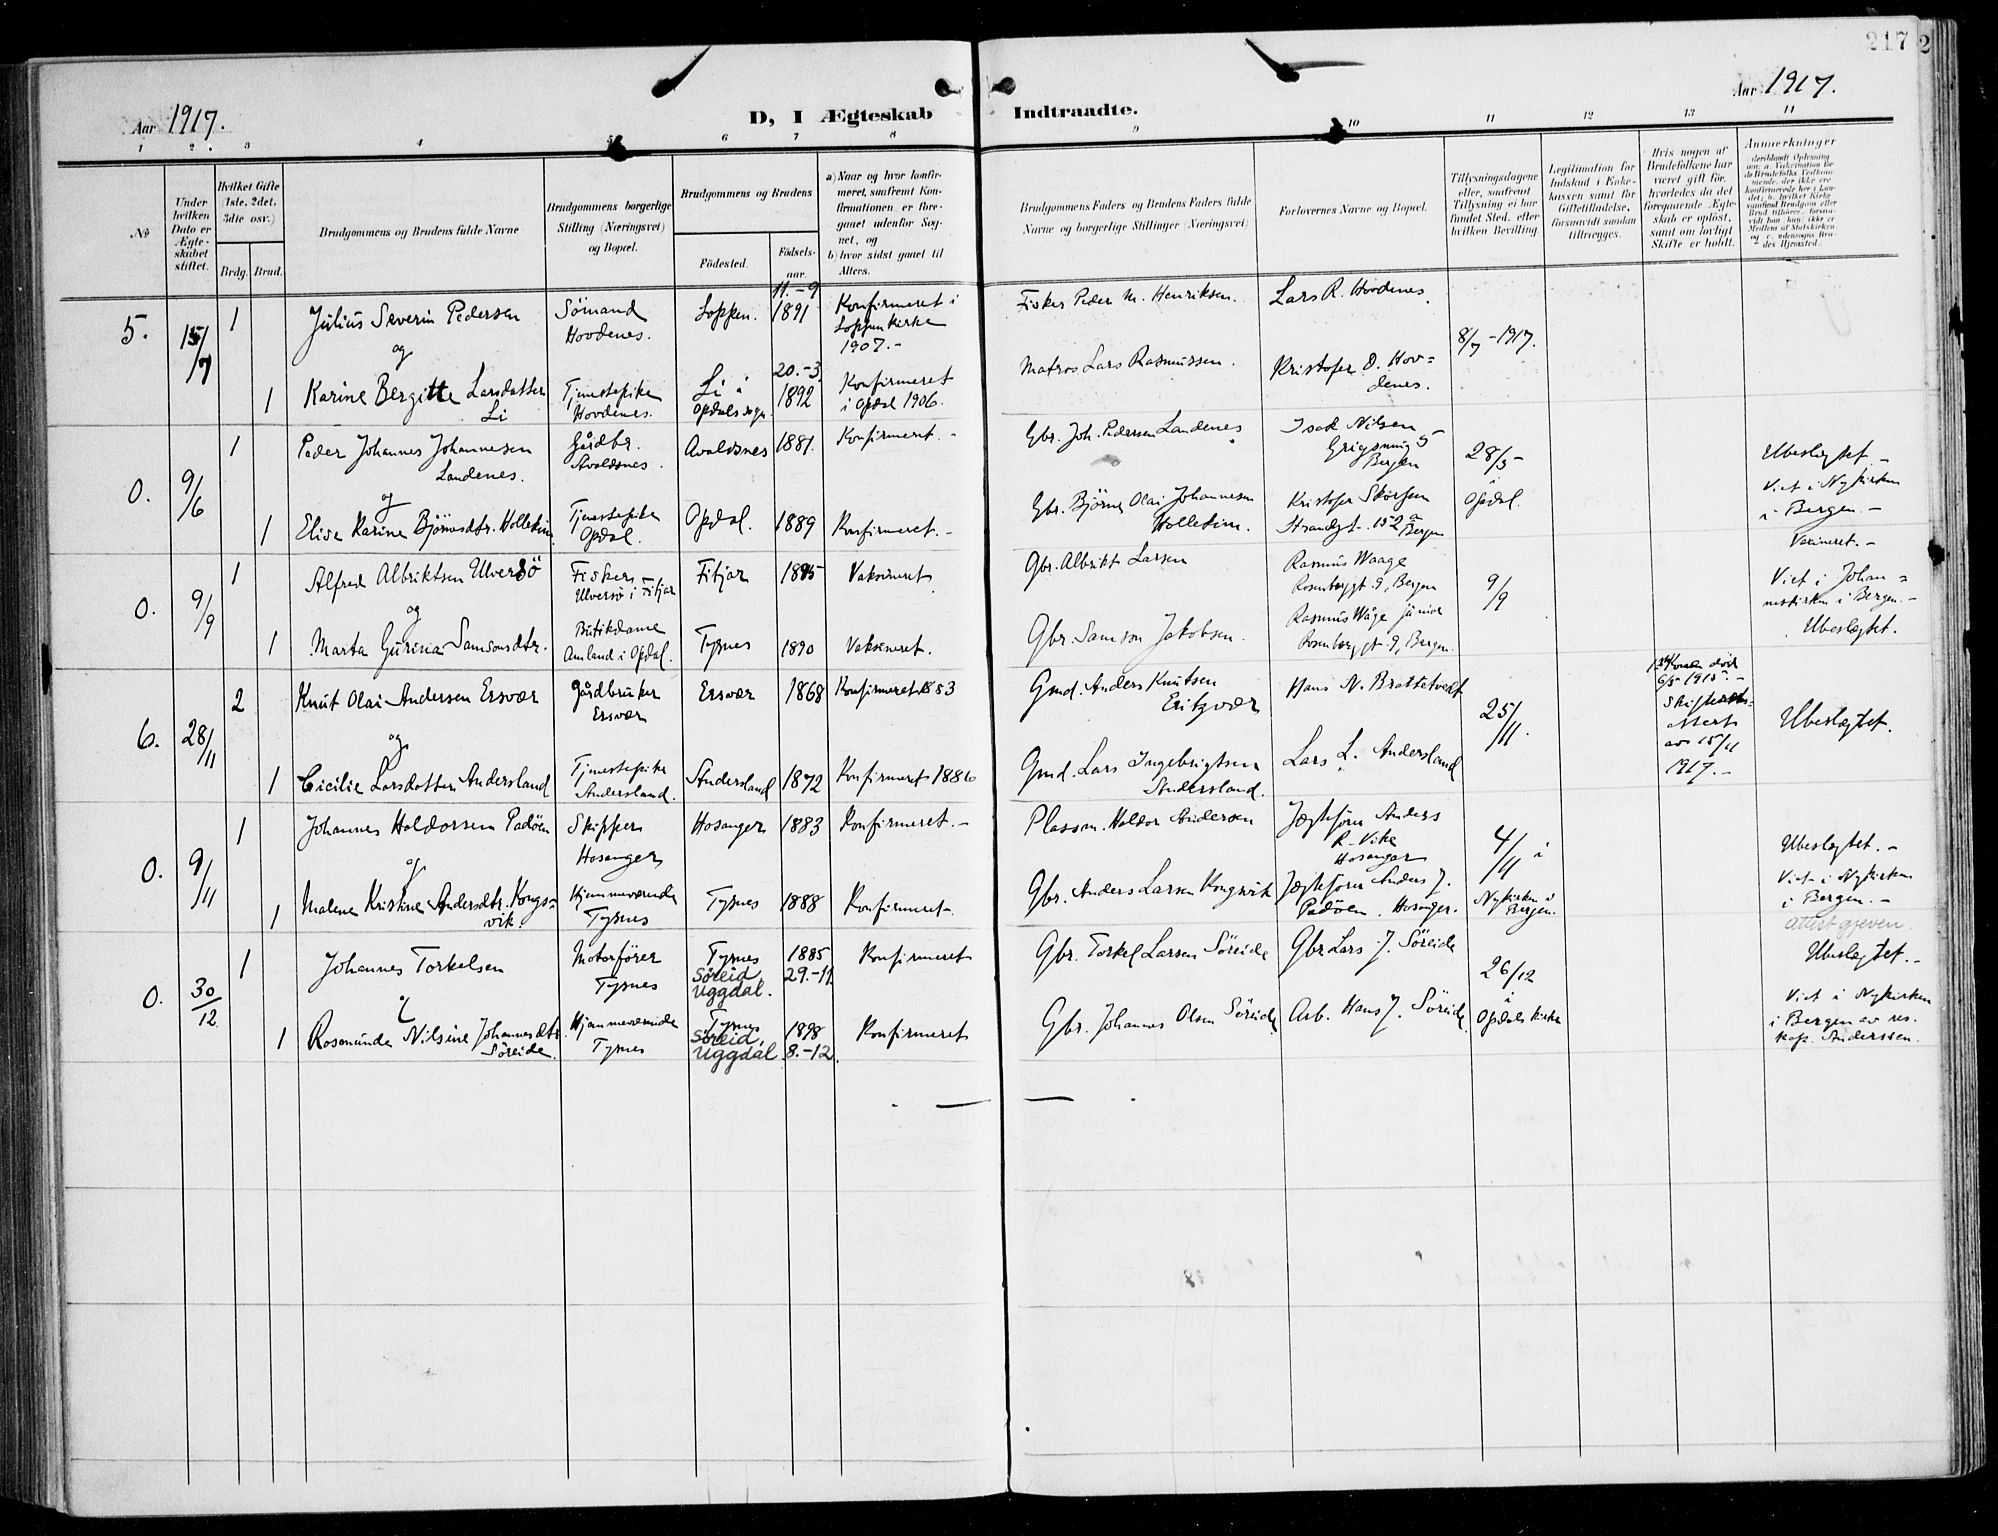 217
2
Aar 1917.
D, I Ægteskab Indtraadte.
Aar 1917.
1 2 3 4 5 6 7 8 9 10 11 12 13 14
No
Under hvilken Dato er Ægteskabet stiftet.
Hvilket Gifte (1ste. 2det. 3die osv.)
Brdg. Brud.
Brudgommens og Brudens fulde Navne
Brudgommens borgerlige Stilling (Næringsvei) og Bopæl.
Brudgommens og Brudens
Fødested.
Fødselsaar.
a) Naar og hvor konfirmeret, saafremt Konfirmationen er foregaaet udenfor Sognet, og
b) hvor sidst gaaet til Alters.
Brudgommens Faders og Brudens Faders fulde Navne og borgerlige Stillinger (Næringsvei)
Forlovernes Navne og Bopæl.
Tillysningsdagene eller, saafremt Tillysning ei har fundet Sted, efter hvilken Bevilling.
Legitimation for Indskud i Enkekassen samt for Giftetilladelse, forsaavidt saadan tiltrænges.
Hvis nogen af Brudefolkene har været gift før, hvorledes da det foregaaende Ægteskab er opløst, samt om lovligt Skifte er holdt.
Anmærkninger
5. 15/7 1 Julius Severin Pedersen Sömand Hovdenes. Loppen. 11.-9 1891 Konfirmeret i Loppen Kirke 1907.- Fisker Peder M. Henriksen. Lars R. Hovdenes. 8/7-1917.
og
1 Karine Bergitte Larsdatter Li Tjenestepike Hovdenes. Li i Opdals sogn 20.-3. 1892 Konfirmeret i Opdal 1906. Matros Lars Rasmussen. Kristofer O. Hovdenes.
0. 9/6 1 Peder Johannes Johannesen Landenes. Gårdbr. Avaldsnes. Avaldsnes 1881. Konfirmeret.- Gbr. Joh. Pedersen Landenes Isak Nilsen Bergen 28/5- Opdal. Ubeslegtet.-
Viet i Nykirken i Bergen.-
og
1 Elise Karine Björnsdtr. Tjenestepike Opdal. Opdal. 1889 Konfirmeret.- Gbr. Björne Olai Johannesen Kristofer Strandgt. 152a Bergen
Vaxineret.-
0. 9/9 1 Alfred Albriktsen Ulversö Fisker Ulversö i Fitjar Fitjar 1895 Vaksineret Gbr. Albrikt Larsen Rasmus Waage Rosenberggt. 9, Bergen 9/9 Viet i Johanneskirken i Bergen.-
og
1 Marta Gurina Samsonsdtr. Butikdame Amland i Opdal. Tysnes 1890 Vaksineret. Gbr. Samson Jakobsen. Rasmus Våge junior Rosenberggt. 9, Bergen. Ubeslegtet.
6. 28/11 2 Knut Olai Andersen Ersvær Gårdbruker Ersvær Ersvær 1868 Konfirmeret 1883 Gmd. Anders Knutsen Hans N. Brattetvedt 25/11. 1ste Kone død 6/5 1915.- Skifteattest av 15/11 1917.- Ubeslegtet.
og
1 Cicilie Larsdatter Andersland Tjenestepike Andersland. Andersland 1872 Konfirmeret 1886 Gmd. Lars Ingebrigtsen Andersland. Lars L. Andersland
0. 9/11 1 Johannes Haldorsen Padöen Skipper Hosanger Hosanger 1883 Konfirmeret.- Plassm. Haldor Andersen Jægtefører Anders R. Vike Hosanger 4/11 i Nykirken i Bergen. Ubeslegtet.-
Viet i Nykirken i Bergen.-
og
1 Malene Kristine Andersdtr. Kongsvik. Hjemmeværende Tysnes Tysnes 1888 Konfirmeret.- Gbr. Anders Larsen Kongsvik Jægtefører Anders J. Padöen. Hosanger.
Attest gjeven
0. 30/12 1 Johannes Torkelsen Motorfører Tysnes Tysnes Søreid, Uggdal. 1885 29.-11. Konfirmeret Gbr. Torkel Larsen Söreide Gbr Lars J. Söreide 26/12 i Opdals kirke Ubeslegtet.-
&
1 Rosamunde Nilsine Johannesdtr. Söreide. Hjemmeværende Tysnes Tysnes Søreid, Uggdal 1898 8.-12. Konfirmeret Gbr. Johannes Olsen Söreide Arb. Hans J. Söreide
Viet i Nykirken i Bergen av res. kap. Anderssen.